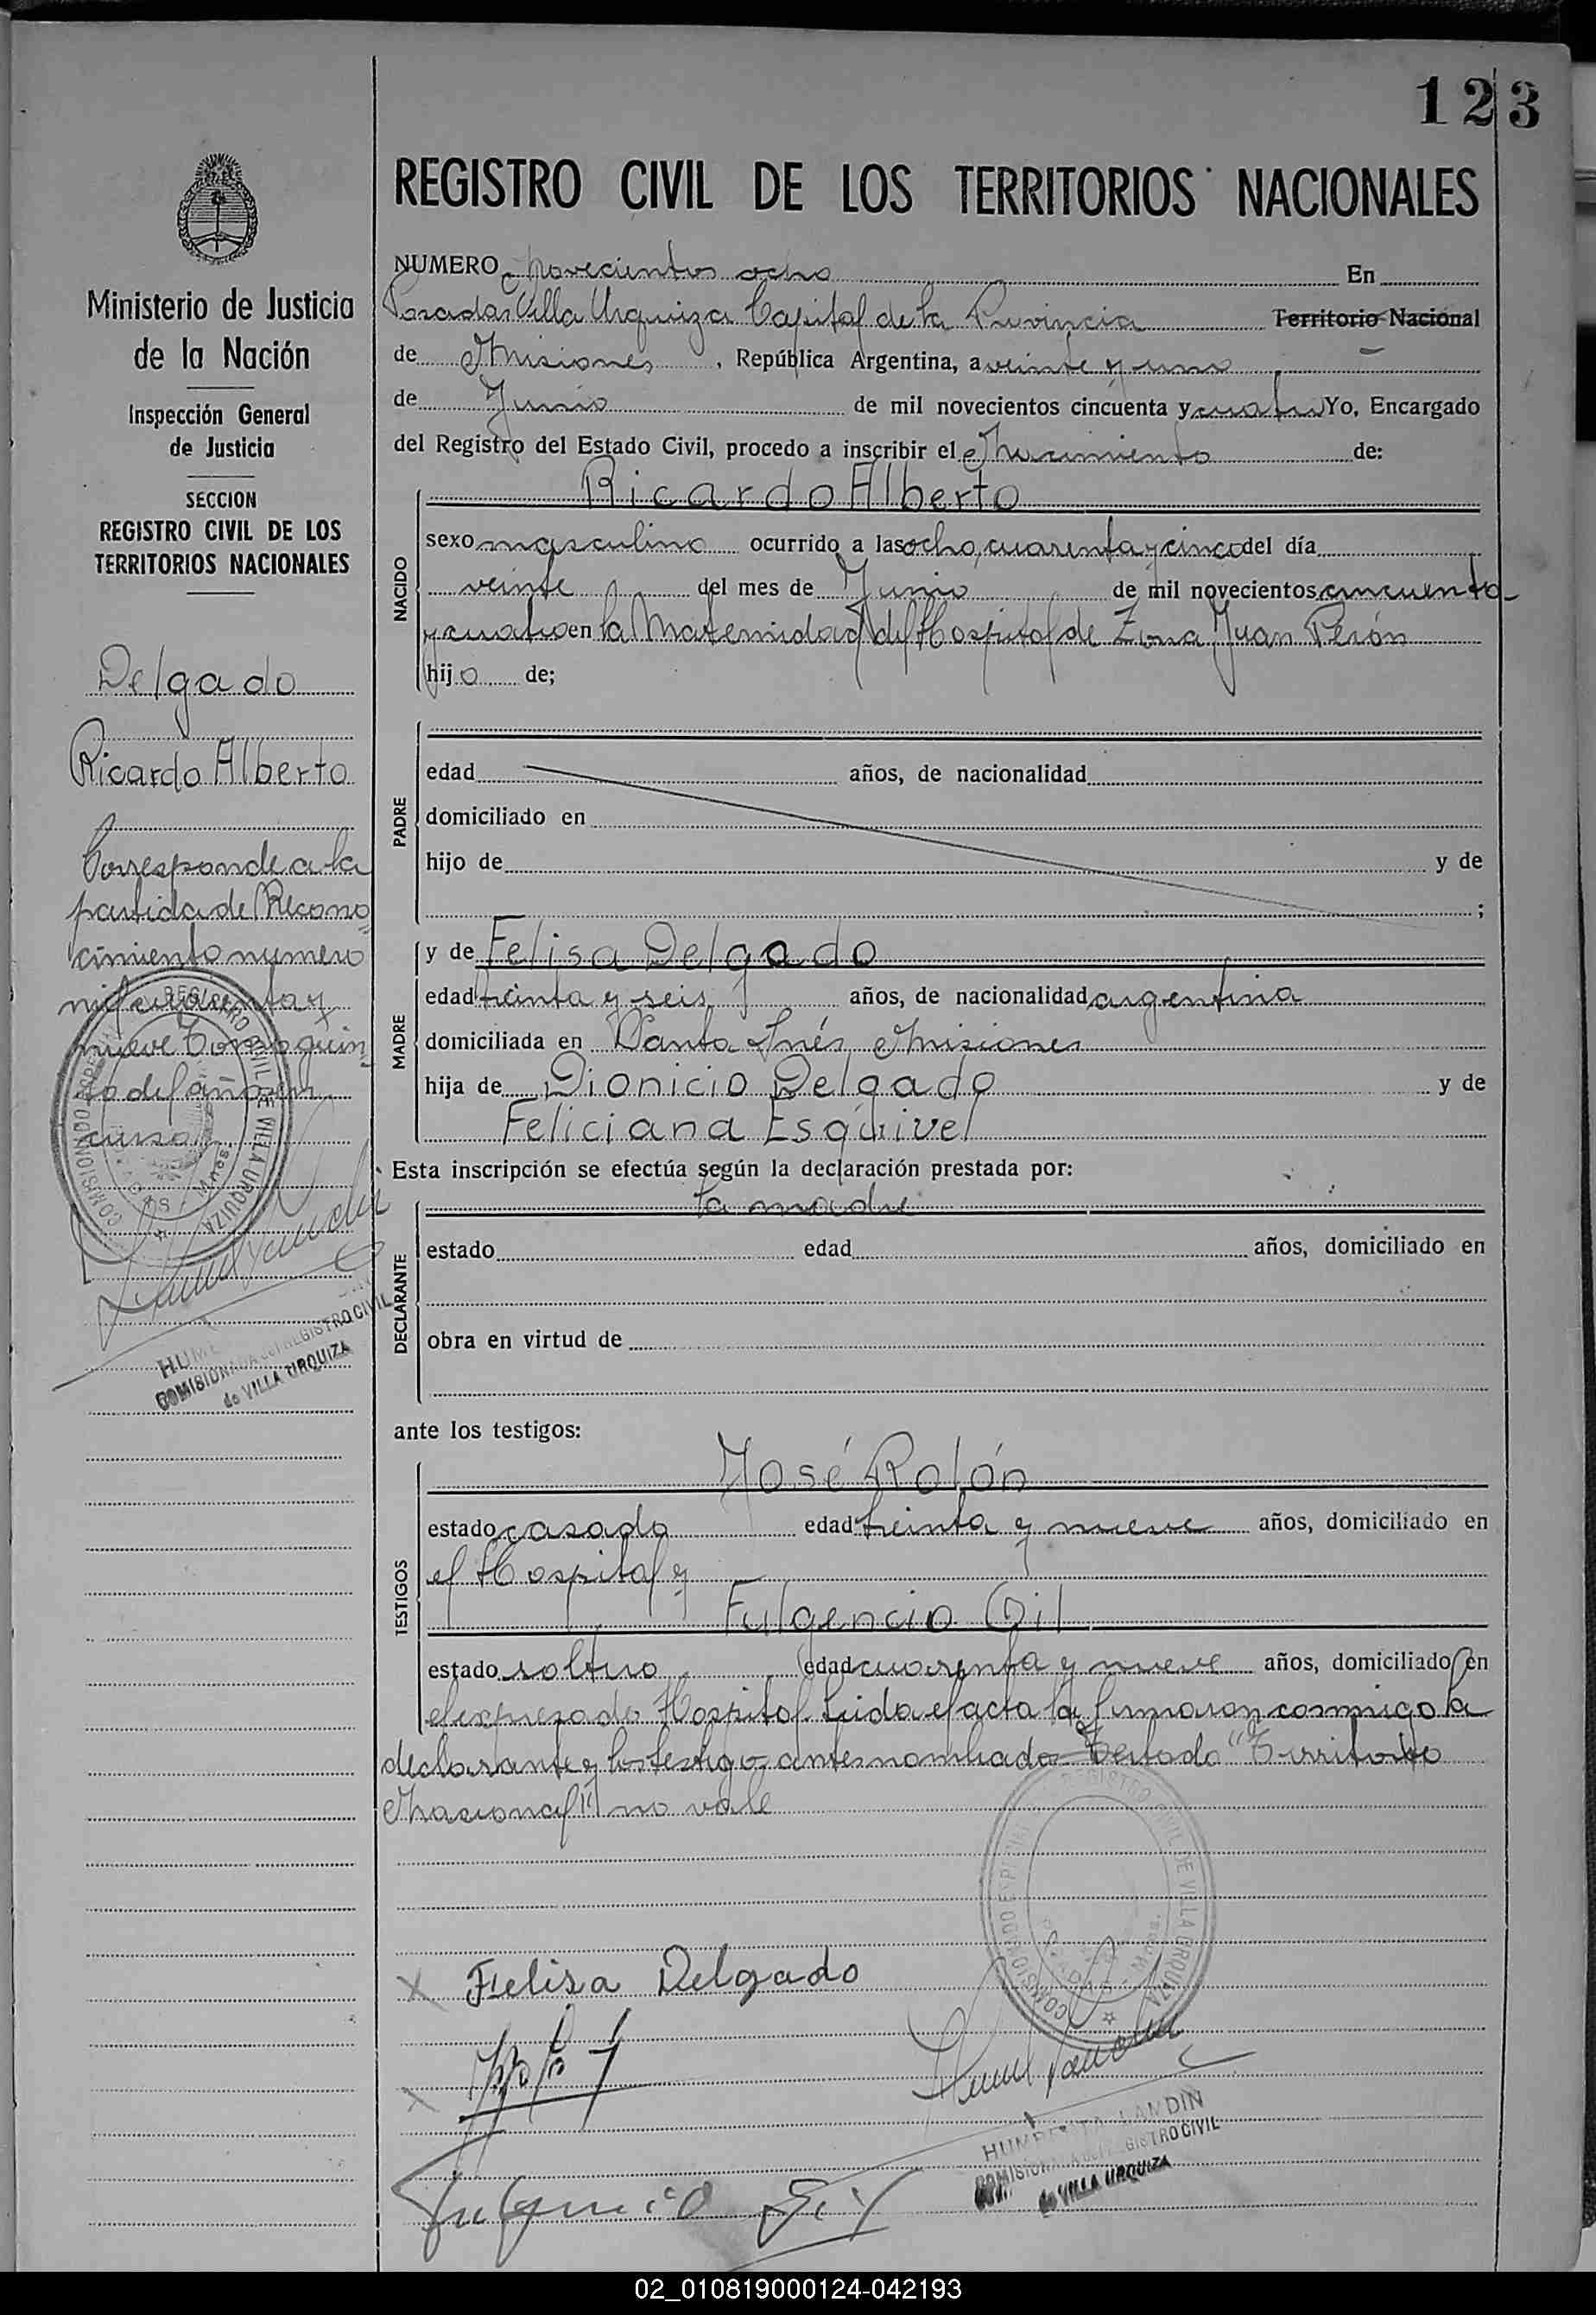 123
REGISTRO CIVIL DE LOS TERRITORIOS NACIONALES
Ministerio de Justicia
de la Nación
Inspección General
de Justicia
SECCION
REGISTRO CIVIL DE LOS
TERRITORIOS NACIONALES
Delgado
Ricardo Alberto
Corresponde a la
partida de Recono
cimiento numero
mil cuarenta y
nueve Tomo quin
to del año en
curso
COMISIONADO ESPECIAL REGISTRO CIVIL DE VILLA URQUIZA
COMISIONADA del REGISTRO CIVIL
de VILLA URQUIZA
NUMERO Novecientos ocho En
Posadas Villa Urquiza Capital de la Provincia Territorio Nacional
de Misiones, República Argentina, a veinte y uno
de Junio de mil novecientos cincuenta y cuatro Yo, Encargado
del Registro del Estado Civil, procedo a inscribir el Nacimiento de:
NACIDO
Ricardo Alberto
sexo masculino ocurrido a las ocho, cuarenta y cinco del día
veinte del mes de Junio de mil novecientos cincuenta
y cuatro en la Maternidad del Hospital de Zona Juan Perón
hijo de;
PADRE
edad años, de nacionalidad
domiciliado en
hijo de y de
;
MADRE
y de Felisa Delgado
edad treinta y seis años, de nacionalidad argentina
domiciliada en Santa Inés, Misiones
hija de Dionicio Delgado y de
Feliciana Esquivel
Esta inscripción se efectúa según la declaración prestada por:
DECLARANTE
la madre
estado edad años, domiciliado en
obra en virtud de
ante los testigos:
TESTIGOS
José Rolón
estado casado edad treinta y nueve años, domiciliado en
el Hospital y
Fulgencio Gil
estado soltero edad cuarenta y nueve años, domiciliado en
el expresado Hospital. Leida el acta la firmaron conmigo la
declarante y los testigo antes nombrado Testado "Territorio
Nacional" no vale
REGISTRO CIVIL DE VILLA URQUIZA
Felisa Delgado
Fulgencio Gil
REGISTRO CIVIL
de VILLA URQUIZA
02_010819000124-042193